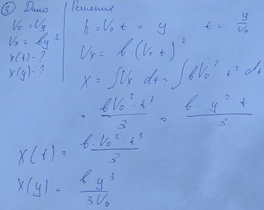 ③ Дано
V₀ = Vy
Vx = by²
x(t) - ?
x(y) - ?
Решение
h = V₀t = y t = y/V₀
Vx = b·(V₀t)²
X = ∫Vx dt = ∫bV₀² t² dt
= bV₀²·t³/3 = b·y²·t/3
X(t) = b·V₀²t³/3
X(y) = by³/3V₀